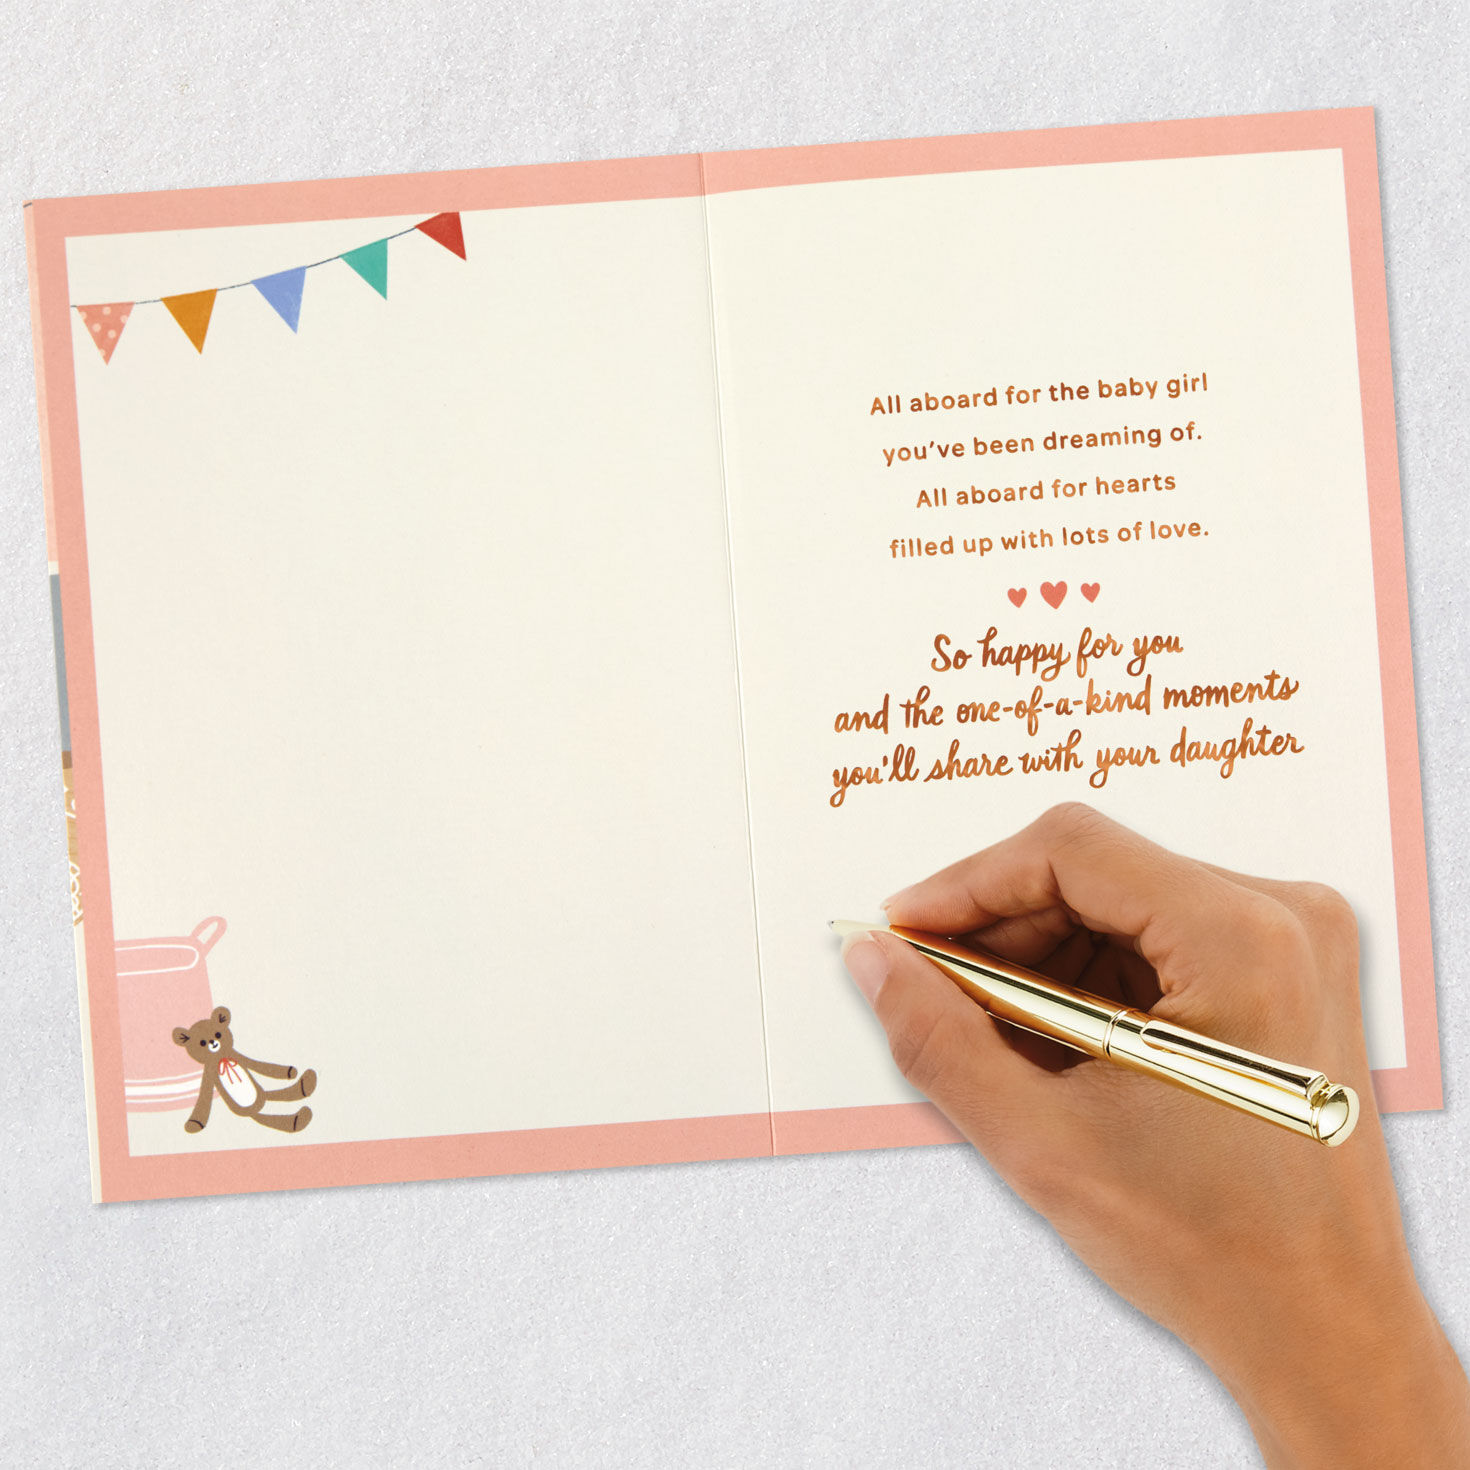 All aboard for the baby girl
you've been dreaming of.
All aboard for hearts
filled up with lots of love.
So happy for you
and the one-of-a-kind moments
you'll share with your daughter